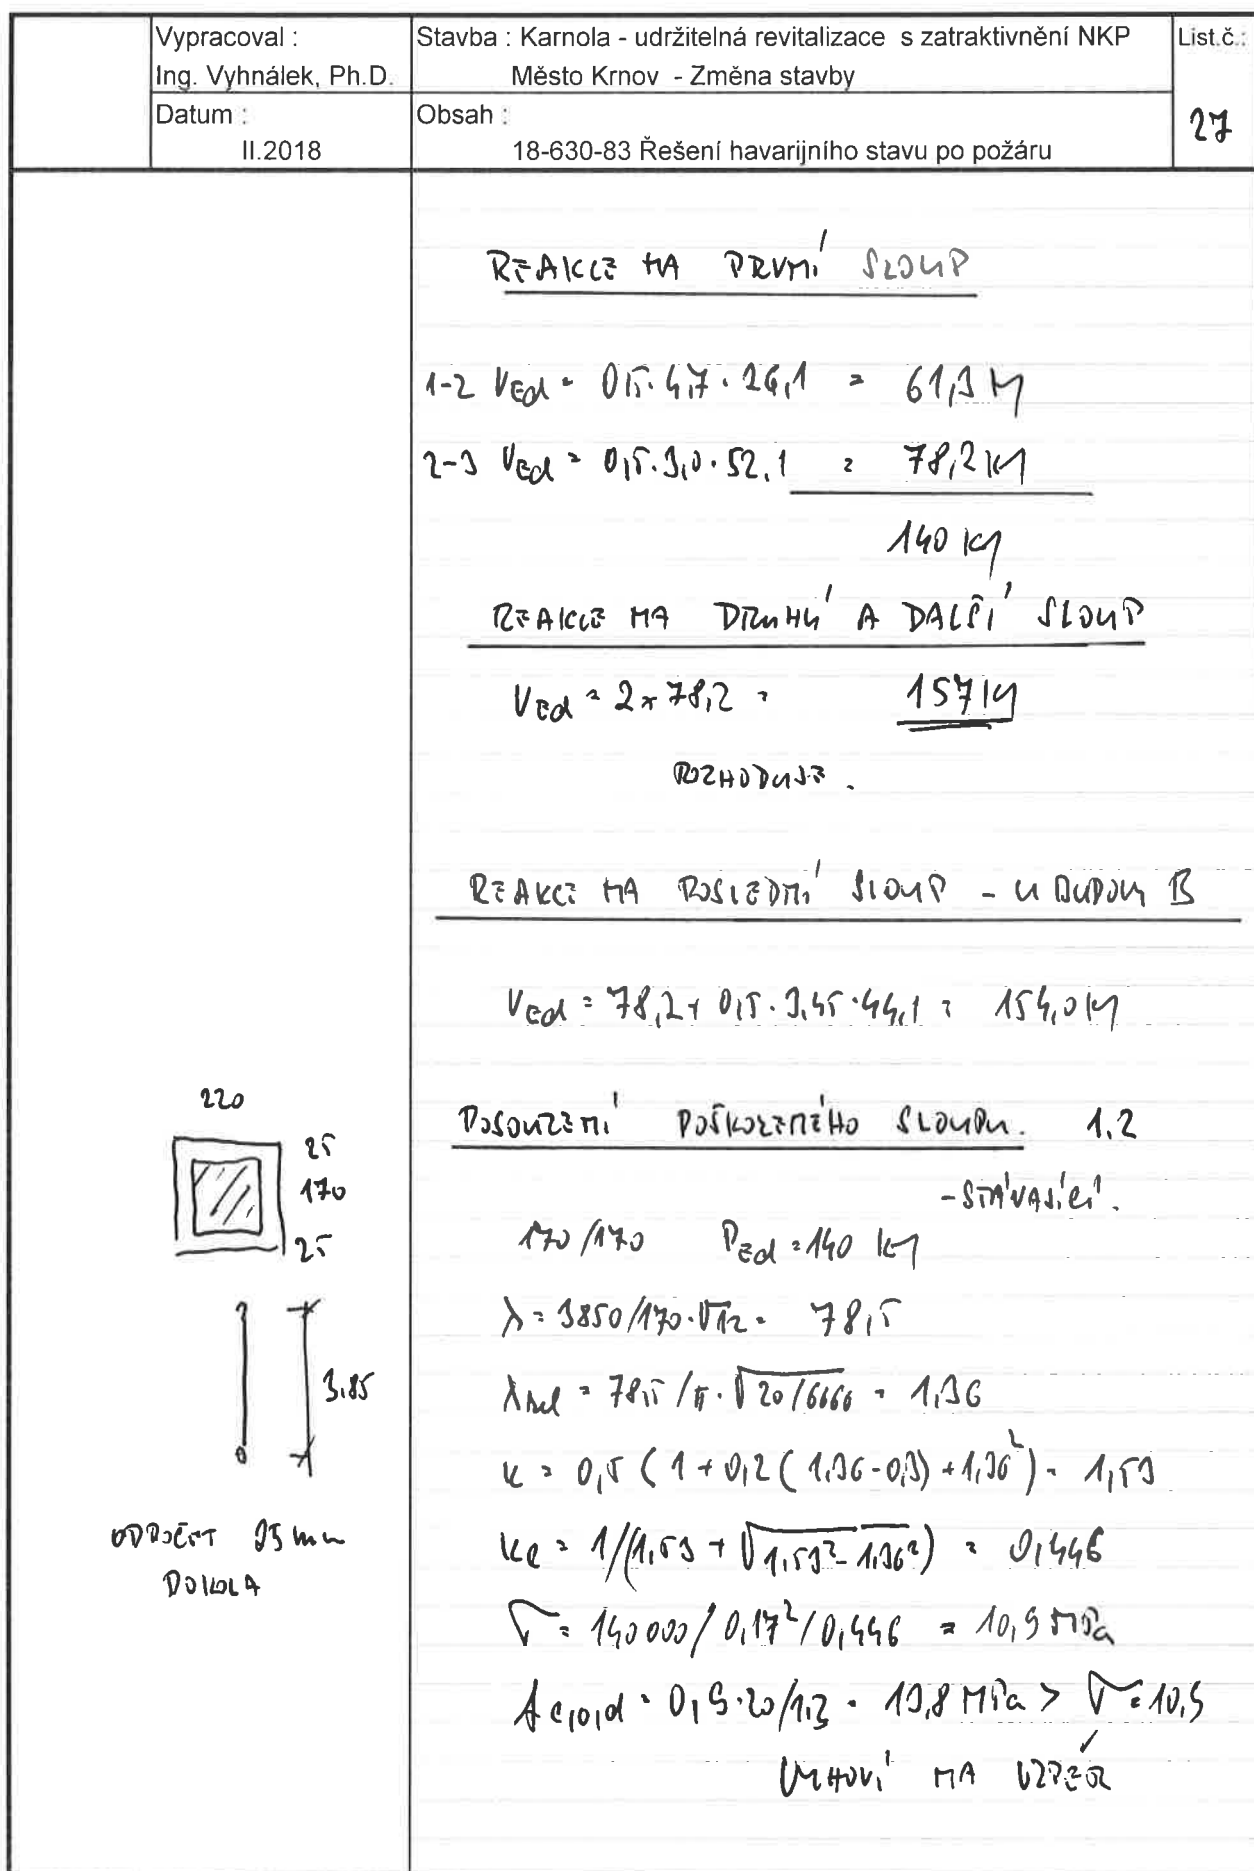 Vypracoval :
Ing. Vyhnálek, Ph.D.
Stavba : Karnola - udržitelná revitalizace s zatraktivnění NKP
Město Krnov - Změna stavby
List.č.:
27
Datum :
II.2018
Obsah :
18-630-83 Řešení havarijního stavu po požáru
REAKCE NA PRVNÍ SLOUP
1-2 VEd = 0,5·4,7·26,1 = 61,3 kN
2-3 VEd = 0,5·3,0·52,1 = 78,2 kN
140 kN
REAKCE NA DRUHÝ A DALŠÍ SLOUP
VEd = 2×78,2 = 157 kN
ROZHODUJE.
REAKCE NA POSLEDNÍ SLOUP - U BUDOVY B
VEd = 78,2 + 0,5·3,45·44,1 = 154,0 kN
220
25
170
25
3,85
ODPOČET 25 mm
DOKOLA
POSOUZENÍ POŠKOZENÉHO SLOUPU. 1.2
- STÁVAJÍCÍ.
170/170 PEd = 140 kN
λ = 3850/170·√12 = 78,5
λrel = 78,5/π·√20/6666 = 1,36
k = 0,5 (1 + 0,2 (1,36-0,3) + 1,36²) = 1,53
kc = 1/(1,53 + √1,53²-1,36²) = 0,446
σ = 140000/0,17²/0,446 = 10,9 MPa
fc,0,d = 0,9·20/1,3 = 13,8 MPa > σ = 10,9
VYHOVÍ NA VZPĚR ✓